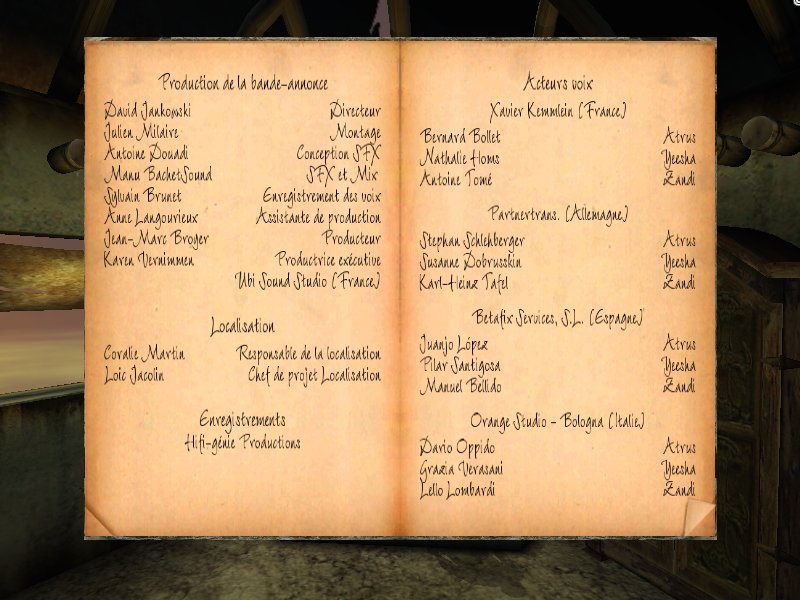 Production de la bande-annonce
David Jankowski Directeur
Julien Milaire Montage
Antoine Douadi Conception SFX
Manu BachetSound SFX et Mix
Sylvain Brunet Enregistrement des voix
Anne Langourieux Assistante de production
Jean-Marc Broyer Producteur
Karen Vernimmen Productrice exécutive
Ubi Sound Studio (France)
Localisation
Coralie Martin Responsable de la localisation
Loic Jacolin Chef de projet Localisation
Enregistrements
Hifi-génie Productions
Acteurs voix
Xavier Kemmlein (France)
Bernard Bollet Atrus
Nathalie Homs Yeesha
Antoine Tomé Zandi
Partnertrans. (Allemagne)
Stephan Schlehberger Atrus
Susanne Dobrusskin Yeesha
Karl-Heinz Tafel Zandi
Betafix Services, S.L. (Espagne)
Juanjo López Atrus
Pilar Santigosa Yeesha
Manuel Bellido Zandi
Orange Studio - Bologna (Italie)
Dario Oppido Atrus
Grazia Verasani Yeesha
Lello Lombardi Zandi